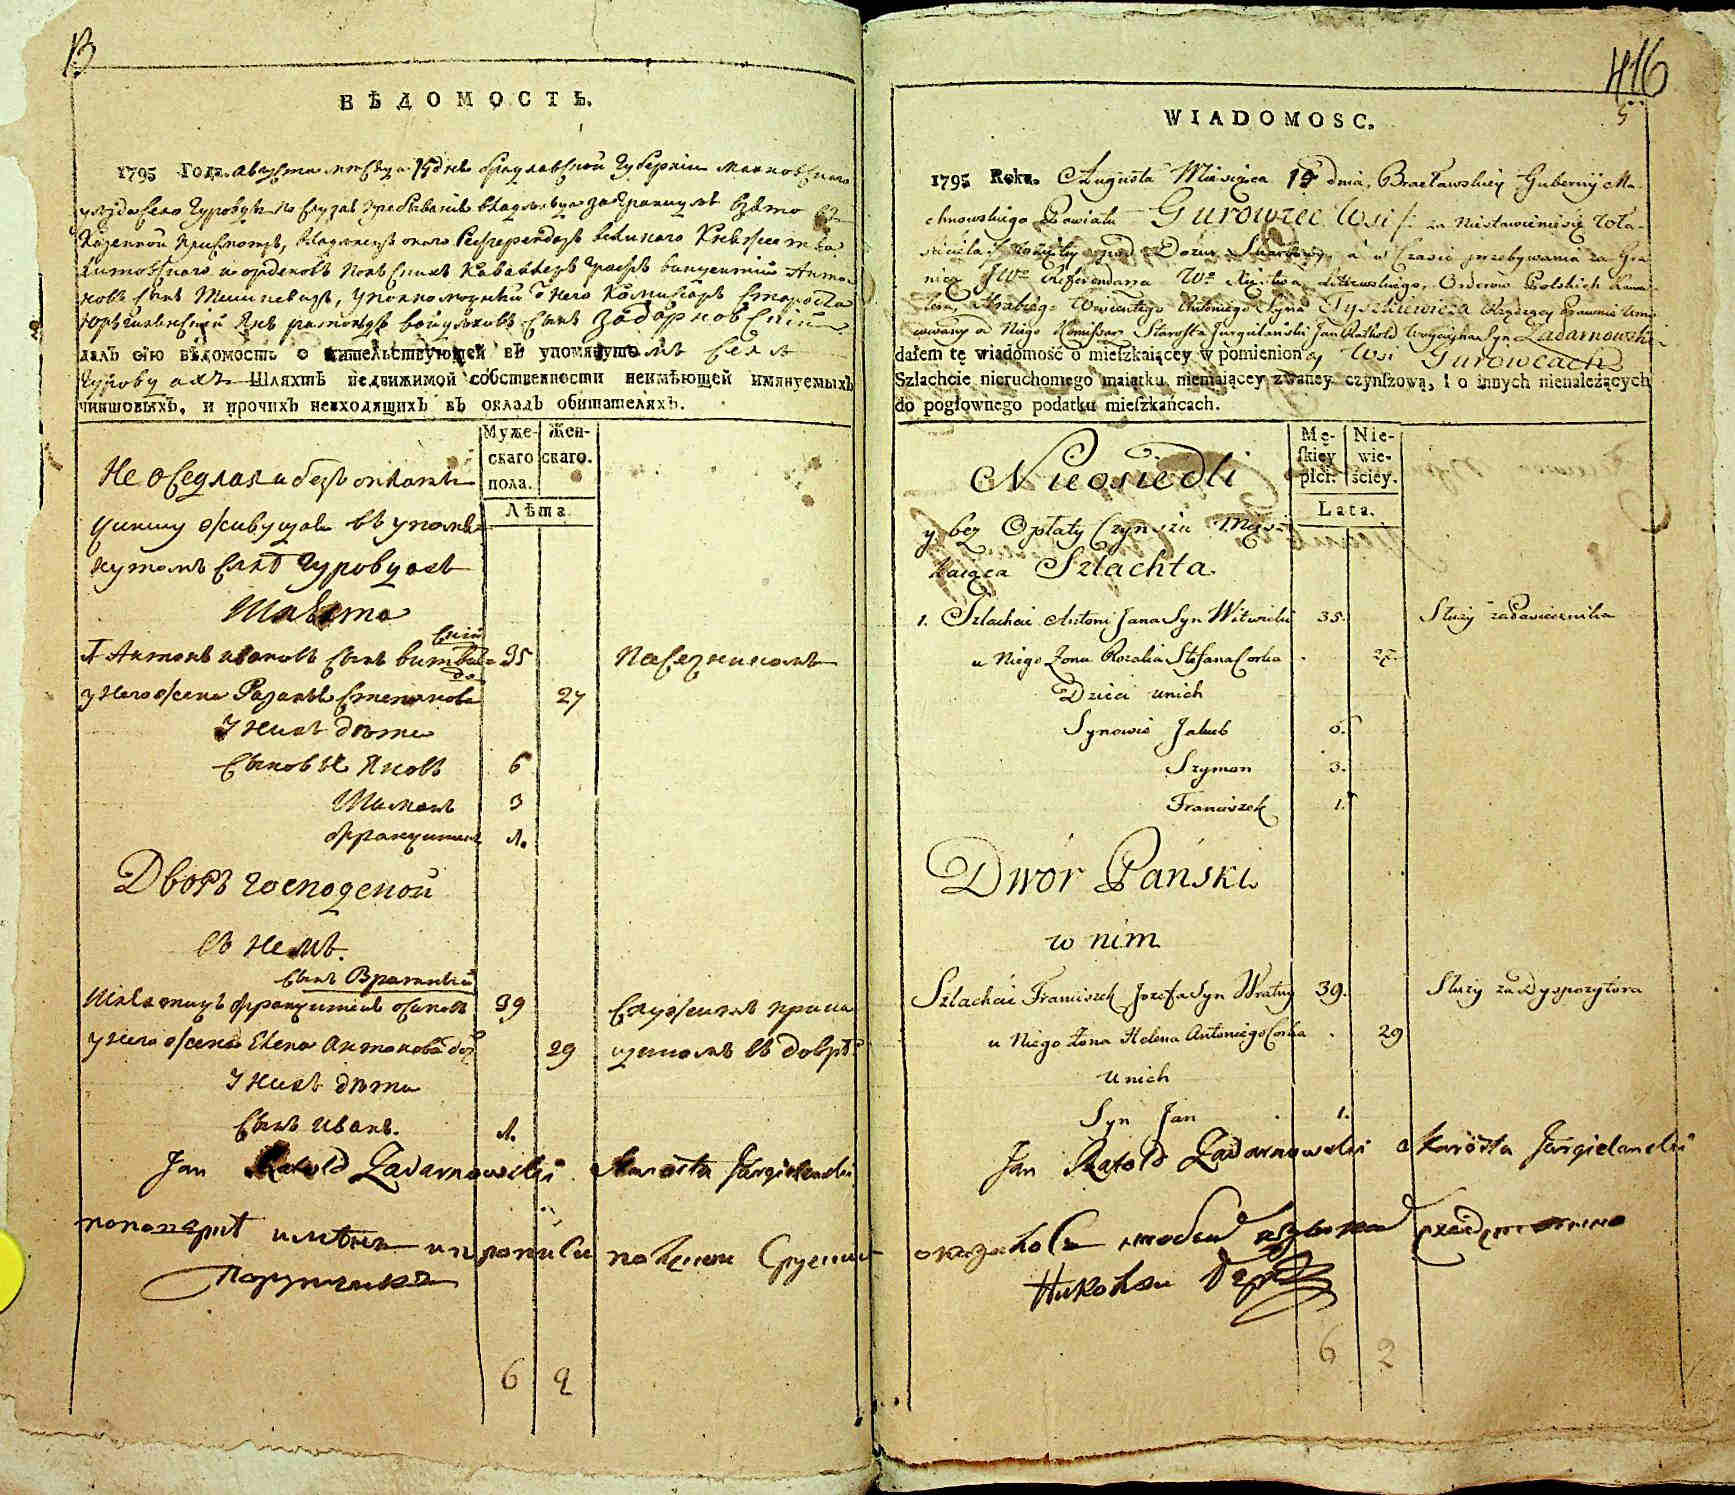 ВѢДОМОСТЬ.
1795 Года Августа месяца 15 дня Брацлавской Губернии Махновскаго
уезда села Гуровцы по случаю пребывания владельца за границу взято
Казенной присмотр,
Литовскаго и орденовъ Польскихъ Кавалеръ Графъ Викентий Анто-
новъ сынъ Тишкевичъ, уполномоченный от него Комисаръ Староста
Янъ сынъ Задарновский
далъ сію вѣдомость о жительствующей въ упомянутомъ селе
Гуровцахъ Шляхтѣ недвижимой собственности неимѣющей имянуемыхъ
чиншовыхъ, и прочихъ невходящихъ въ окладъ обитателяхъ.
Мужескаго пола. Женскаго.
Лѣта.
Не оседлая и безъ оплаты
чиншу живущая въ упомя-
нутомъ селе Гуровцахъ
Шляхта
1 Антонъ Ивановъ сынъ Витвицский 35
у него жена Розалия Степанова 27
У нихъ дети
сыновья Яковъ 6
Шимонъ 3
Францишекъ 1.
Дворъ господской
въ немъ.
Шляхтичъ Францишекъ Осиповъ сынъ Вратный 39
у него жена Елена Антонова доч 29
У нихъ дети
сынъ Иванъ. 1.
Jan Ratold Zadarnowski Starosta Jurgielanski
6 2
416
5
WIADOMOSC.
1795 Roku. Augusta Miesiąca 15 dnia, Bracławskiey Gubernij Ma-
chnowskiego Powiatu Gurowiec Wsi za Niestawieniesię Wła-
sciciela pod Dozor Skarbowy, a w Czasie przebywania za Gra-
nicą JWo Referendarza Wo Xięstwa Litewskiego, Orderow Polskich Kawa-
lera Hrabiego Wincentego Antoniego Syna Tyszkiewicza Rządzący Prawnie Umo-
cowany od Niego Komissarz Starosta Jurgielanski Jan Rathold Woyciecha Syn Zadarnowski
dałem tę wiadomość o mieſzkaiącey w pomienioney Wsi Gurowcach
Szlachcie nieruchomego maiątku niemaiącey zwaney czynſzową, i o innych nienależących
do pogłownego podatku mieſzkańcach.
Mę-ſkiey płci. Nie-wie-ściey.
Lata.
Nieosiedli
y bez Opłaty Czynszu Miesz-
kaiąca Szlachta
1. Szlachcic Antoni Jana Syn Witwicki 35. Służy za Pasiecznika
u Niego Zona Rozalia Stefana Corka 27.
Dzieci unich
Synowie Jakub 6.
Szymon 3.
Franciszek 1.
Dwór Pański
w nim
Szlachcic Franciszek Jozefa Syn Wratny 39. Służy za Dyspozytora
u Niego Zona Helena Antoniego Corka 29
Unich
Syn Jan 1.
Jan Ratold Zadarnowski Starosta Jurgielanski
6 2